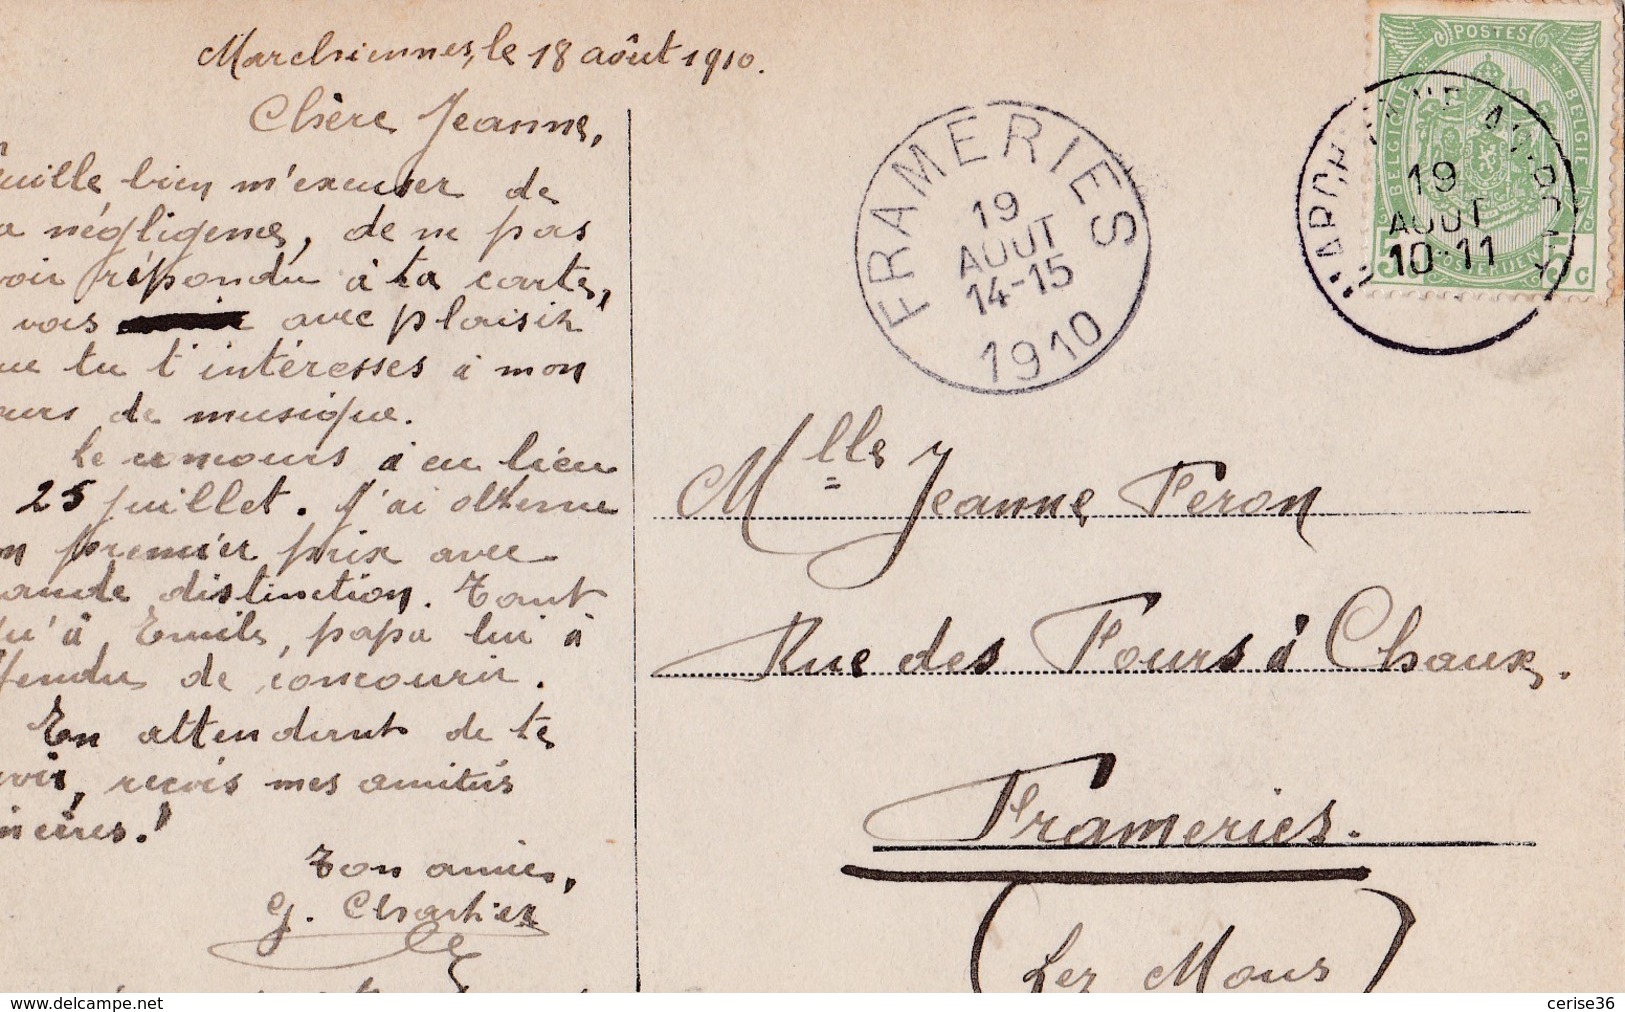 Marchiennes, le 18 août 1910.
Chère Jeanne,
uille bien m'excuser de
a négligence, de ne pas
voir répondu à ta carte,
vois avec plaisir
ue tu t'intéresses à mon
urs de musique.
Le concours a eu lieu
25 juillet. J'ai obtenu
n premier prix avec
ande distinction. Tant
qu'à Emile, papa lui à
fendu de concourir.
En attendant de te
voir, reçois mes amitiés
incères.!
Ton amie,
G. Chartier
FRAMERIES
19
AOUT
14-15
1910
POSTES
BELGIQUE
BELGIE
POSTERIJEN
5 5c
19
AOUT
10-11
Mlle Jeanne Peron
Rue des Fours à Chaux,
Frameries.
(Lez Mons)
cerise36 on www.delcampe.net